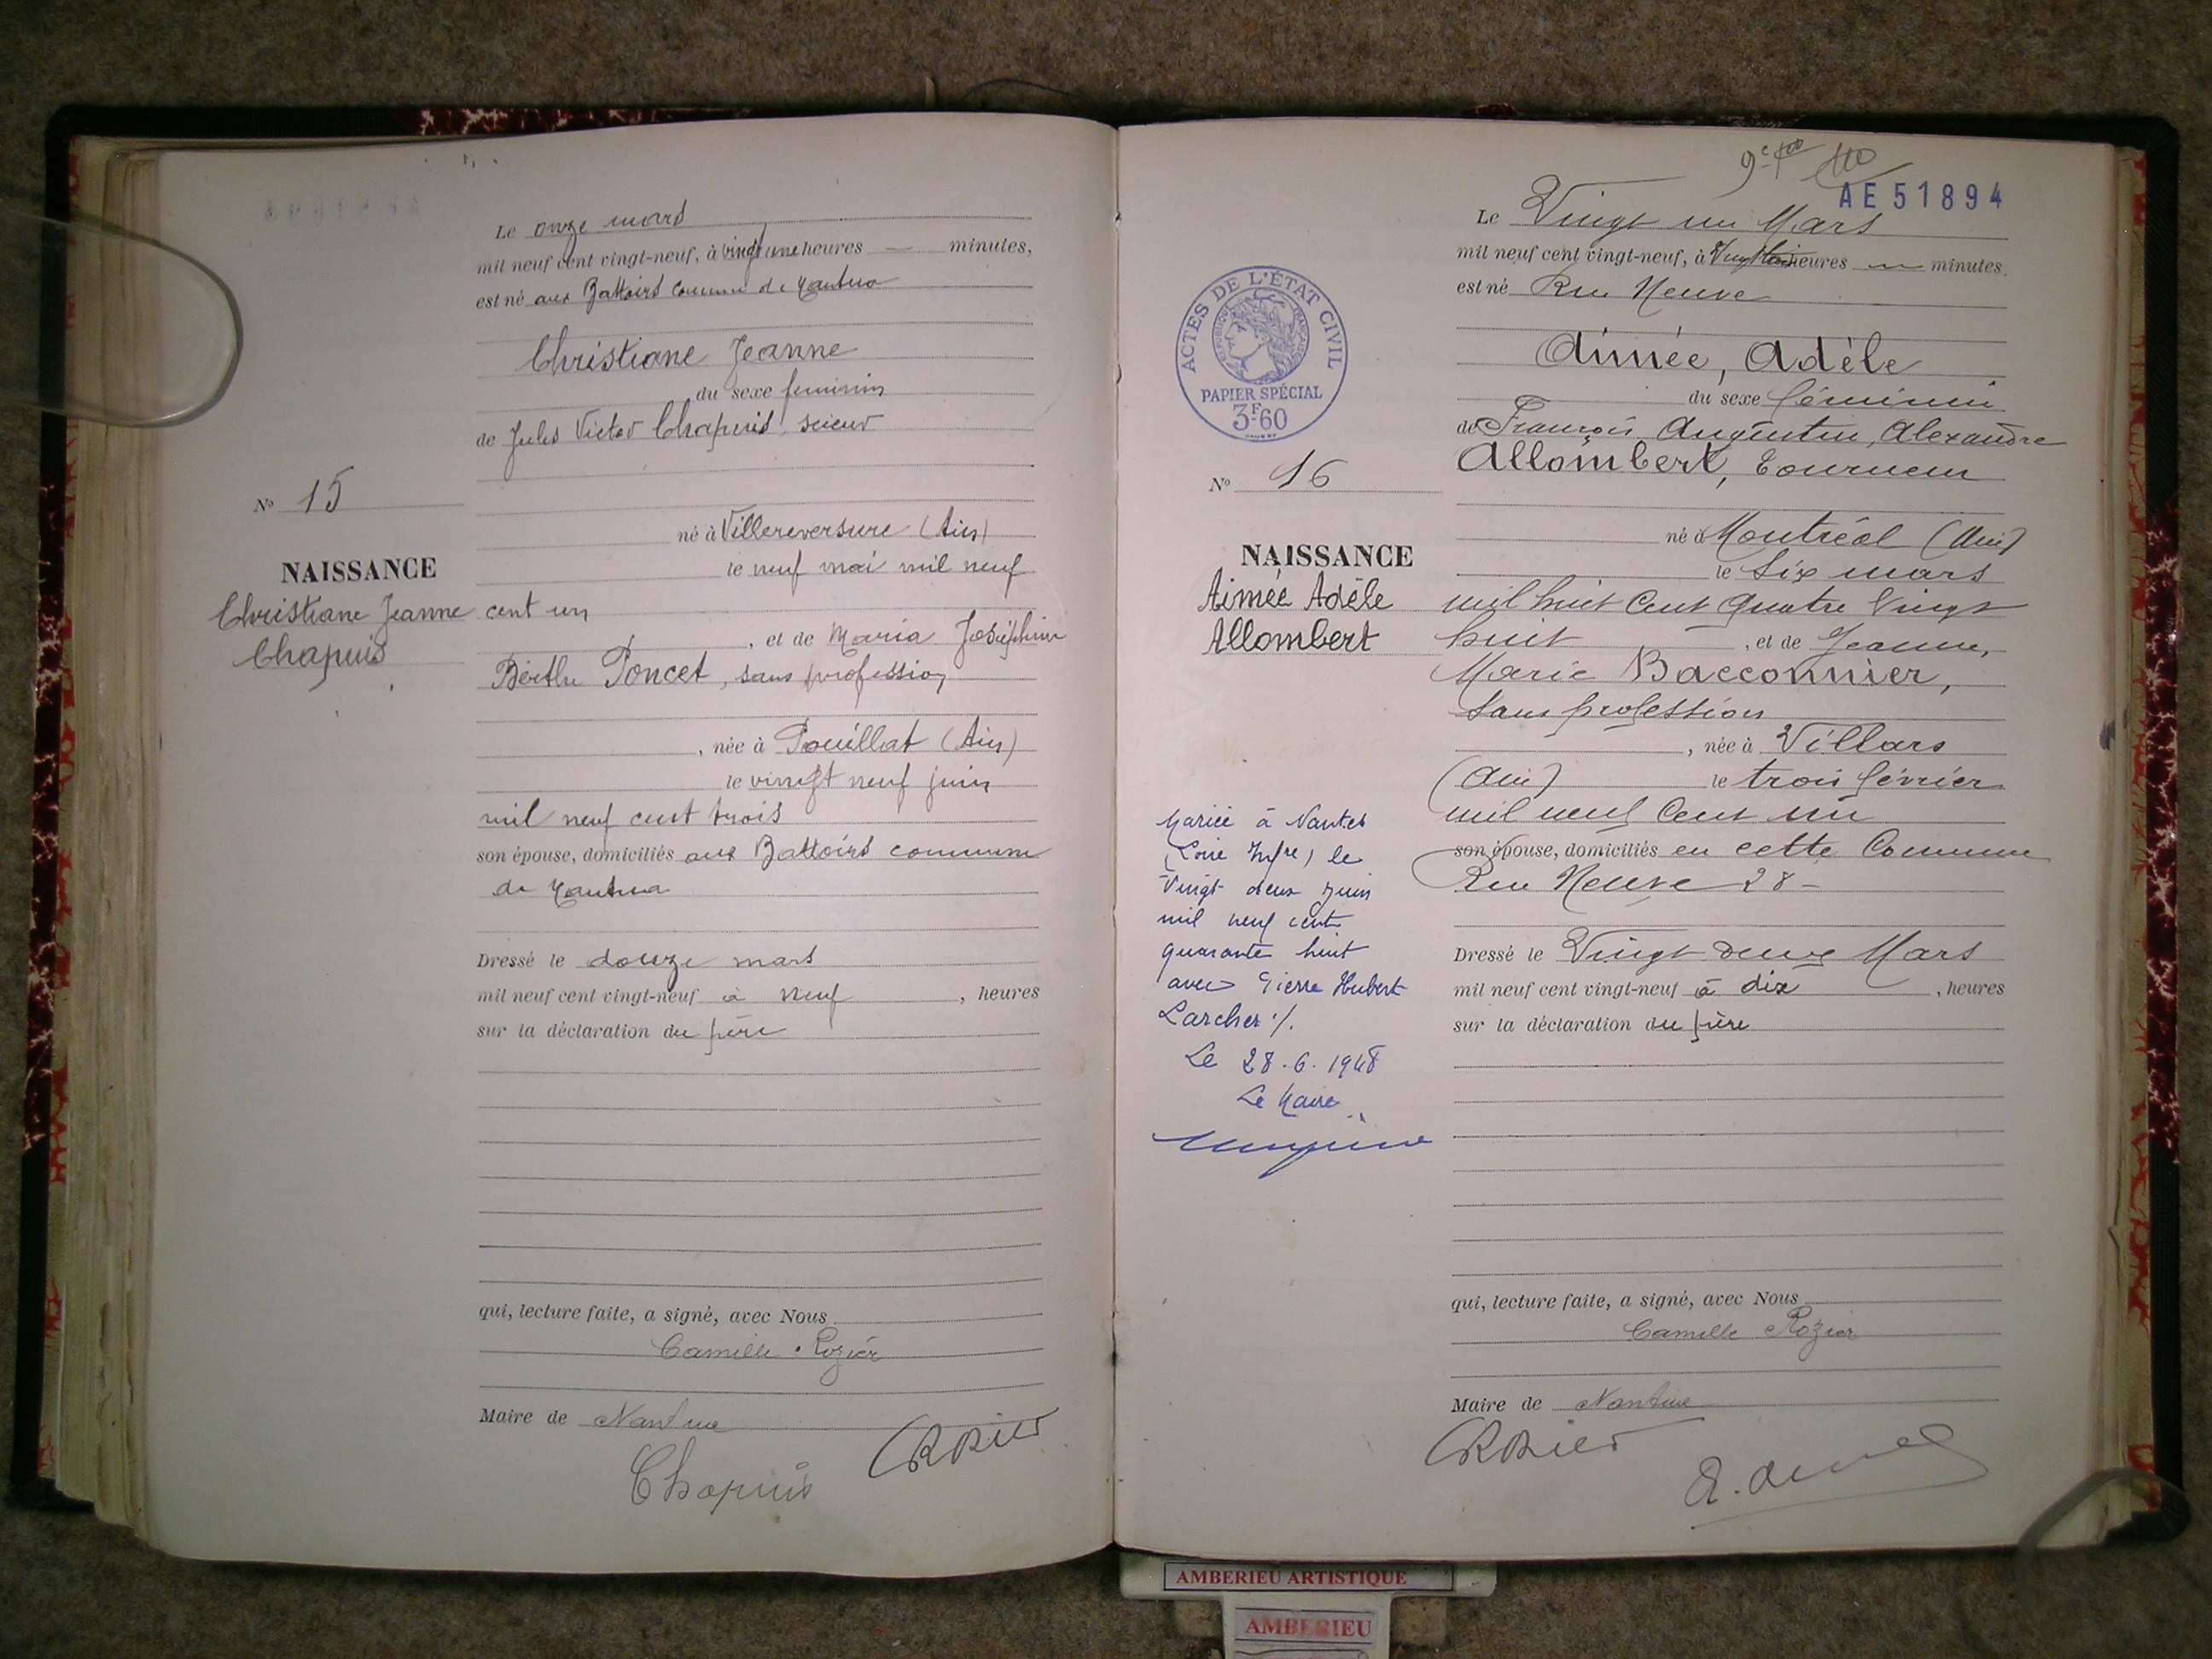 Le onze mars
mil neuf cent vingt-neuf, à vingt une heures — minutes,
est né aux Battoirs commune de Nantua
Christiane Jeanne
du sexe feminin
de Jules Victor Chapuis, scieur
né à Villereversure (Ain)
le neuf mai mil neuf
cent un
, et de Maria Joséphine
Berthe Poncet, sans profession
, née à Pouillat (Ain)
le vingt neuf juin
mil neuf cent trois
son épouse, domiciliés aux Battoirs commune
de Nantua
Dressé le douze mars
mil neuf cent vingt-neuf à neuf , heures
sur la déclaration du père
qui, lecture faite, a signé, avec Nous
Camille Rozier
Maire de Nantua
Chapuis CRozier
No 15
NAISSANCE
Christiane Jeanne
Chapuis
AE 51894
Le Vingt un Mars
mil neuf cent vingt-neuf, à heures — minutes,
est né Rue Neuve
Aimée, Adèle
du sexe féminin
de François Augustin, Alexandre
Allombert, Tourneur
né à Montréal (Ain)
le Six mars
mil huit Cent quatre Vingt
huit , et de Jeanne,
Marie Bacconnier,
Sans profession
, née à Villars
(Ain) le trois février
mil neuf Cent un
son épouse, domiciliés en cette Commune
Rue Neuve 28 -
Dressé le Vingt deux Mars
mil neuf cent vingt-neuf à dix , heures
sur la déclaration du père
qui, lecture faite, a signé, avec Nous
Camille Rozier
Maire de Nantua
CRozier
ACTES DE L'ÉTAT CIVIL
PAPIER SPÉCIAL
3F60
No 16
NAISSANCE
Aimée Adèle
Allombert
Mariée à Nantes
(Loire Infre) le
Vingt deux juin
mil neuf cent
quarante huit
avec Pierre Hubert
Larcher ./.
Le 28.6.1948
Le Maire
AMBERIEU ARTISTIQUE
AMBERIEU